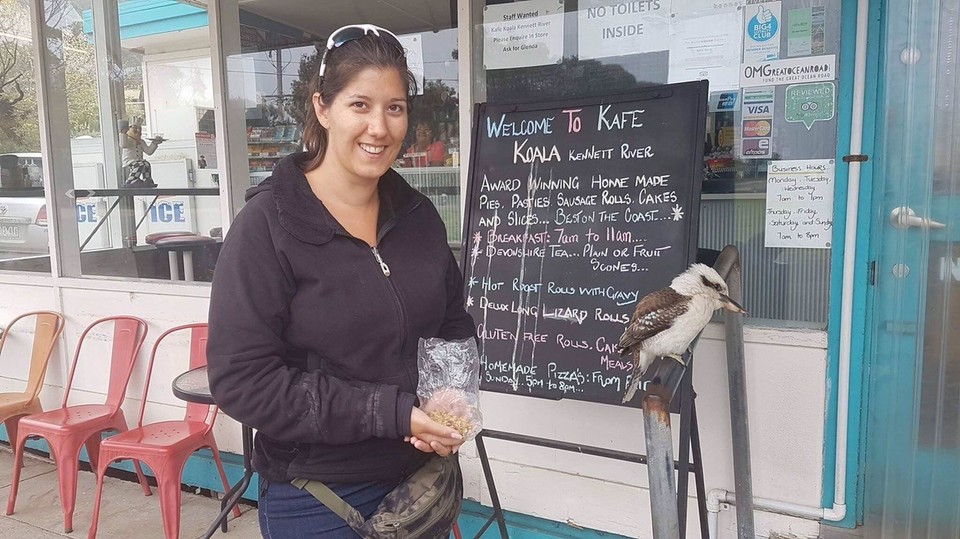 Staff Wanted
Kafe Koala Kennett River
Please Enquire in Store
Ask for Glenda
NO TOILETS
INSIDE
BIG4
OMGREATOCEANROAD!
VISA
MasterCard
REVIEWED
BUSINESS HOURS
Monday, Tuesday,
Wednesday
7am to 7pm
Thursday, Friday,
Saturday and Sunday
7am to 8pm
WELCOME TO KAFE
KOALA KENNETT RIVER
AWARD WINNING HOME MADE
PIES. PASTIES SAUSAGE ROLLS. CAKES
AND SLICES... BEST ON THE COAST....
BREAKFAST: 7am to 11am....
DEVONSHIRE TEA... PLAIN OR FRUIT
SCONES...
HOT ROAST ROLLS WITH GRAVY
DELUX LONG LIZARD ROLLS
GLUTEN FREE ROLLS.
MEALS
HOMEMADE PIZZA'S: FROM
SUNDAY... 5PM to 8PM...
ICE
ICE